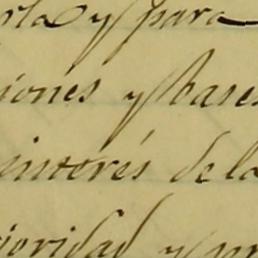 rla y para
iones y bases
interés de la
ioridad y pr